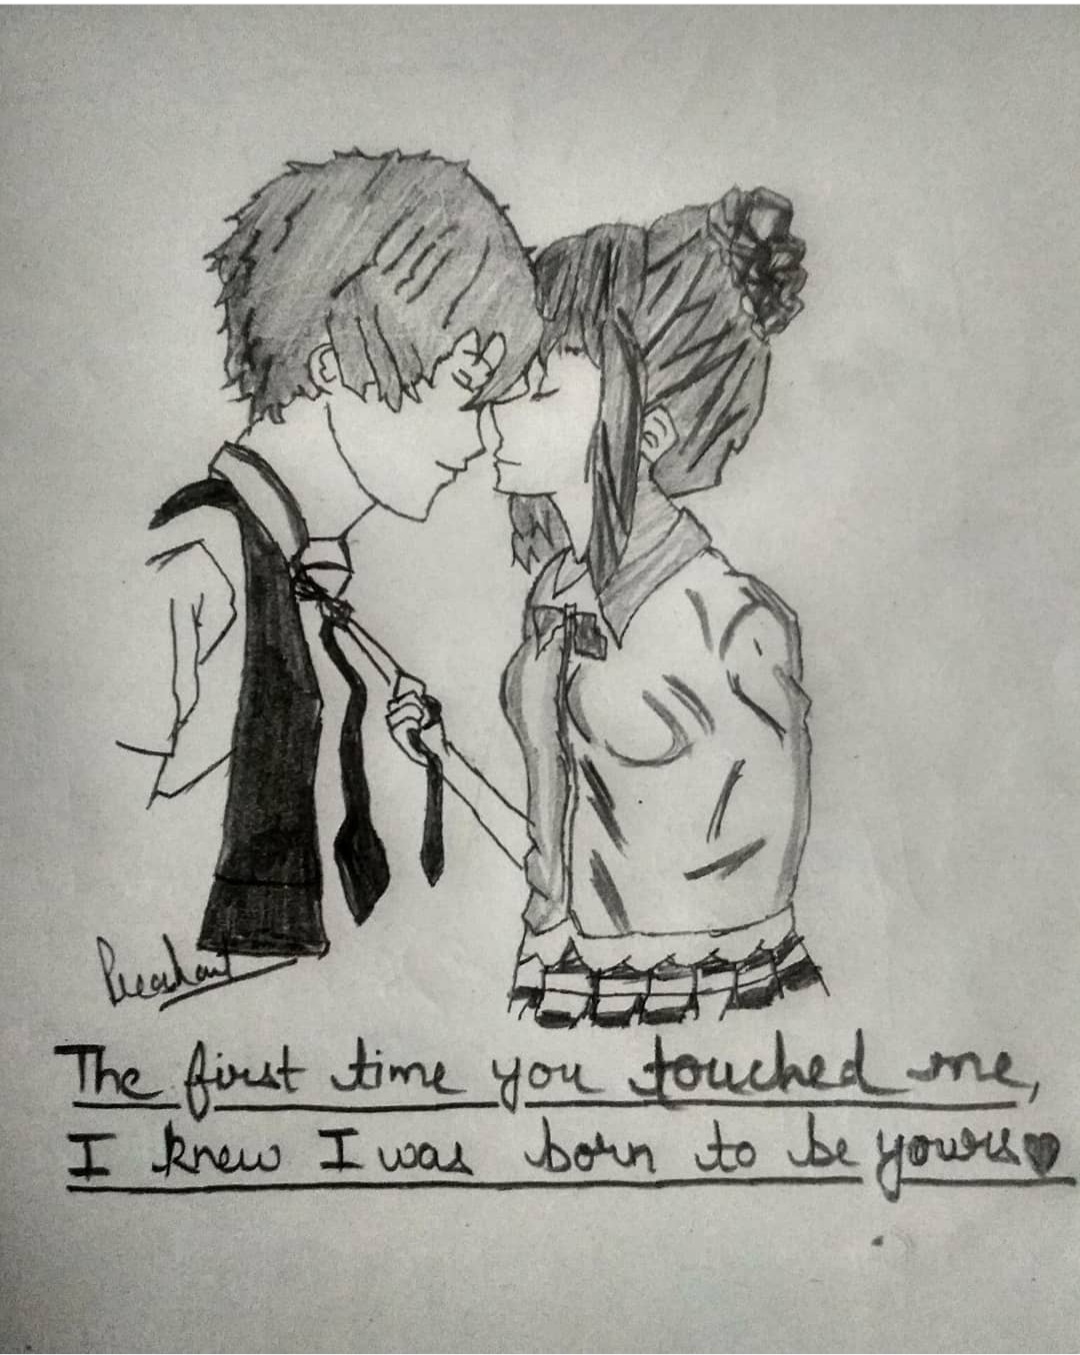 Prashant
The first time you touched me,
I knew I was born to be yours♥